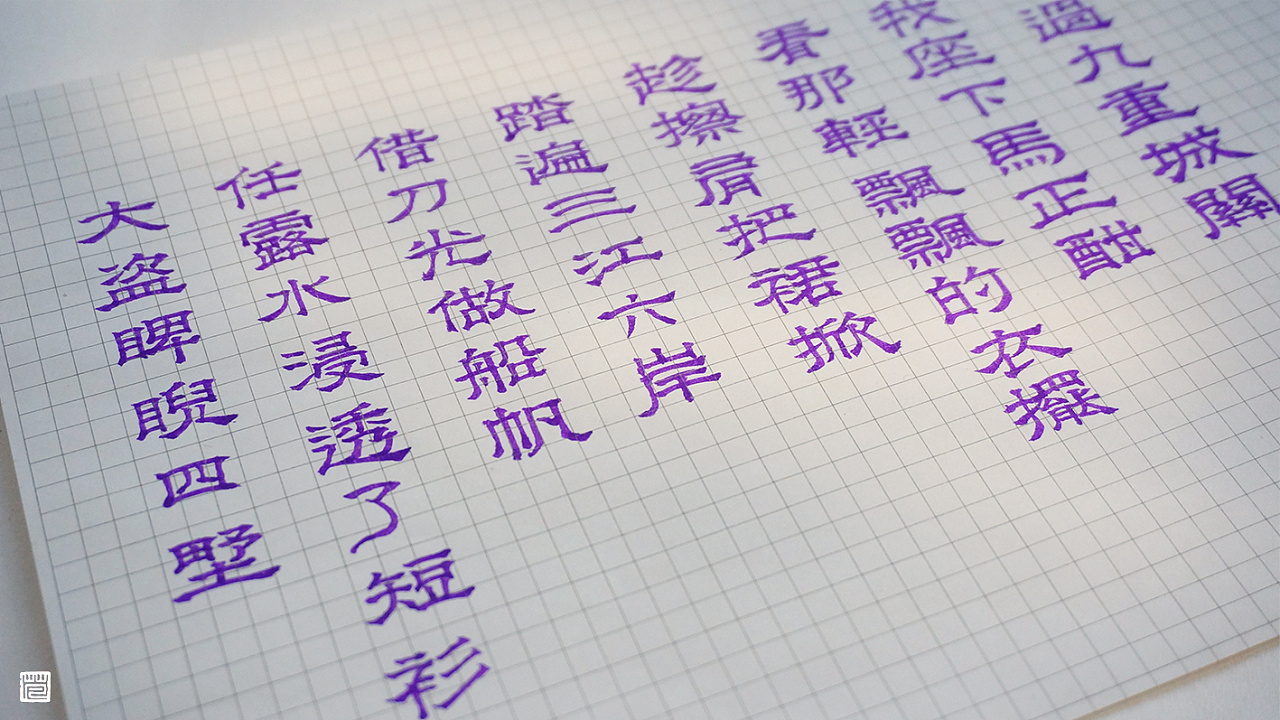 過九重城關
我座下馬正酣
看那輕飄飄的衣擺
趁擦肩把裙掀
踏遍三江六岸
借刀光做船帆
任露水浸透了短衫
大盜睥睨四墅